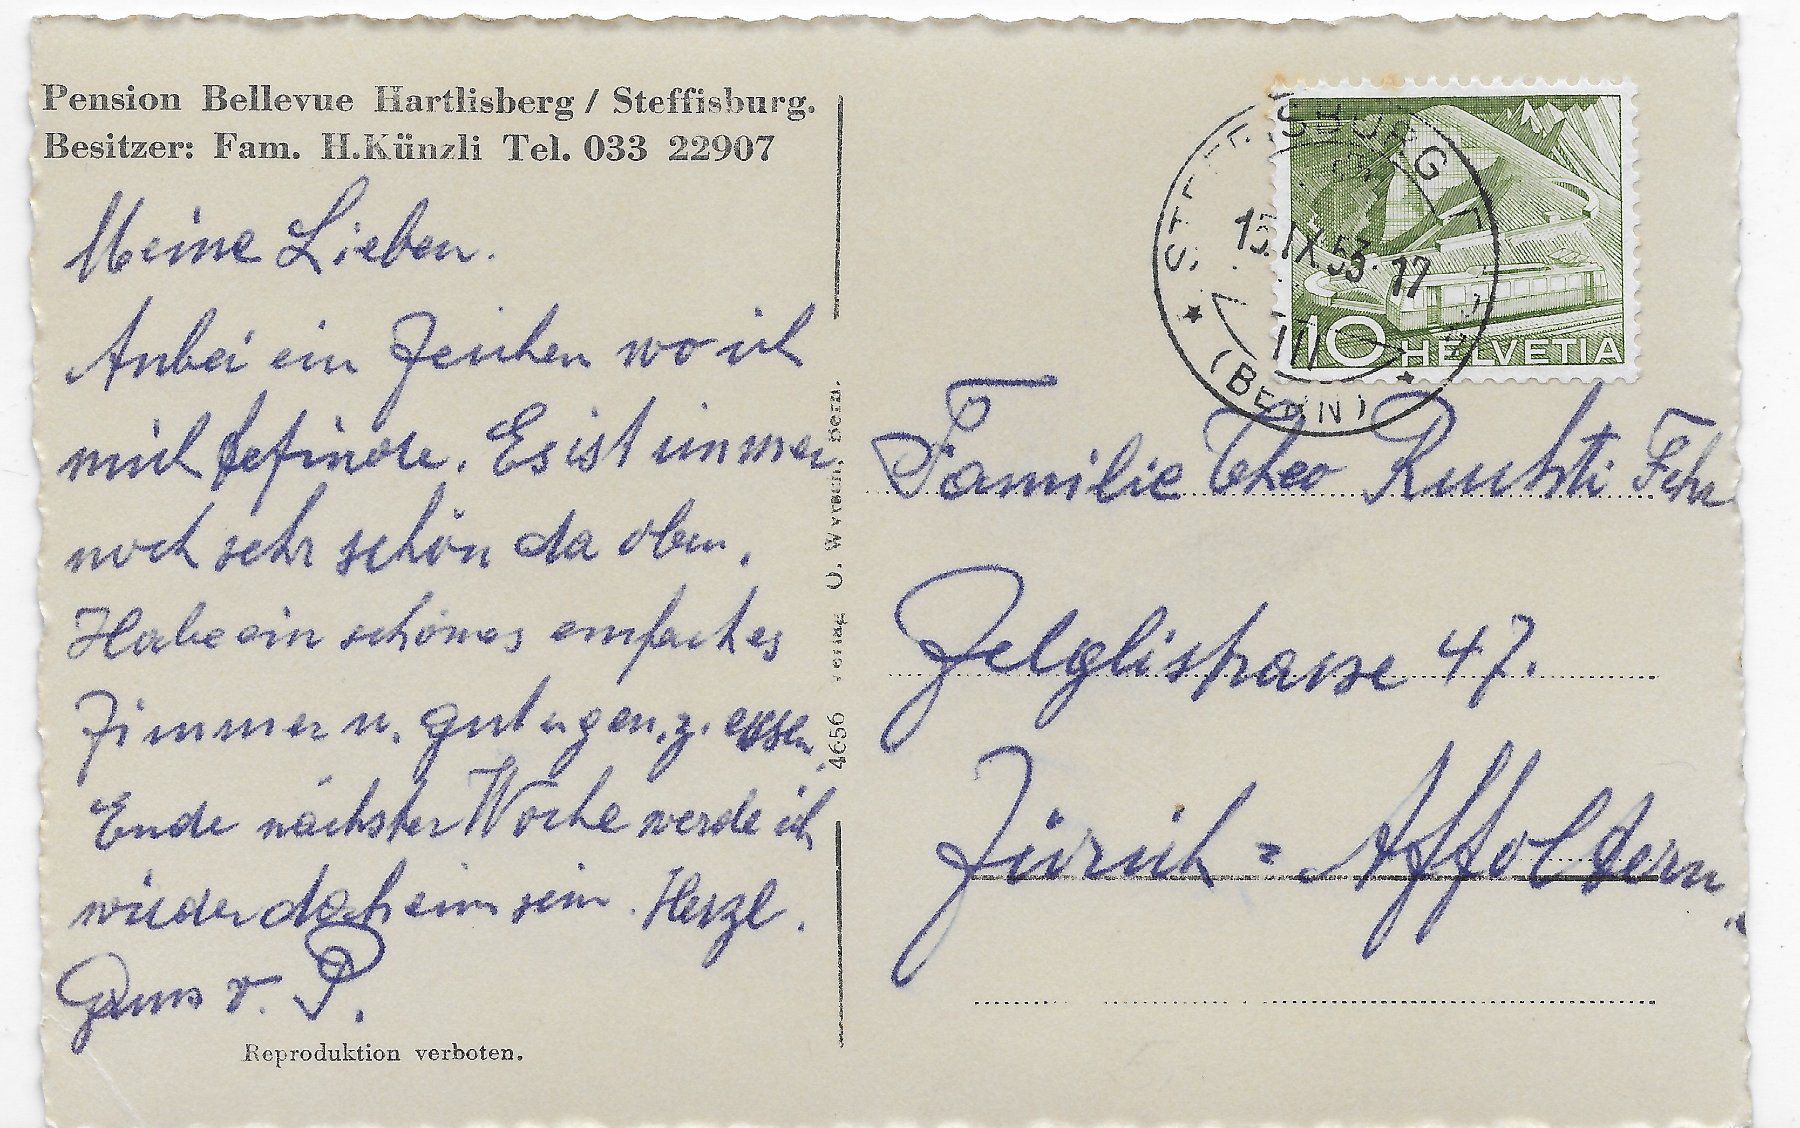 Pension Bellevue Hartlisberg / Steffisburg.
Besitzer: Fam. H.Künzli Tel. 033 22907
Meine Lieben.
Anbei ein Zeichen wo ich
mich befinde. Es ist immer
noch sehr schön da oben.
Habe ein schönes einfaches
Zimmer u. gut u. gen. z. essen.
Ende nächster Woche werde ich
wieder daheim sein. Herzl.
v. P.
Reproduktion verboten.
4656 Verlag O. Wyss, Bern.
STEFFISBURG
15.IX.53.17
(BERN)
10 HELVETIA
Familie Theo Fehr
Zelglistrasse 47.
Zürich = Affoltern.